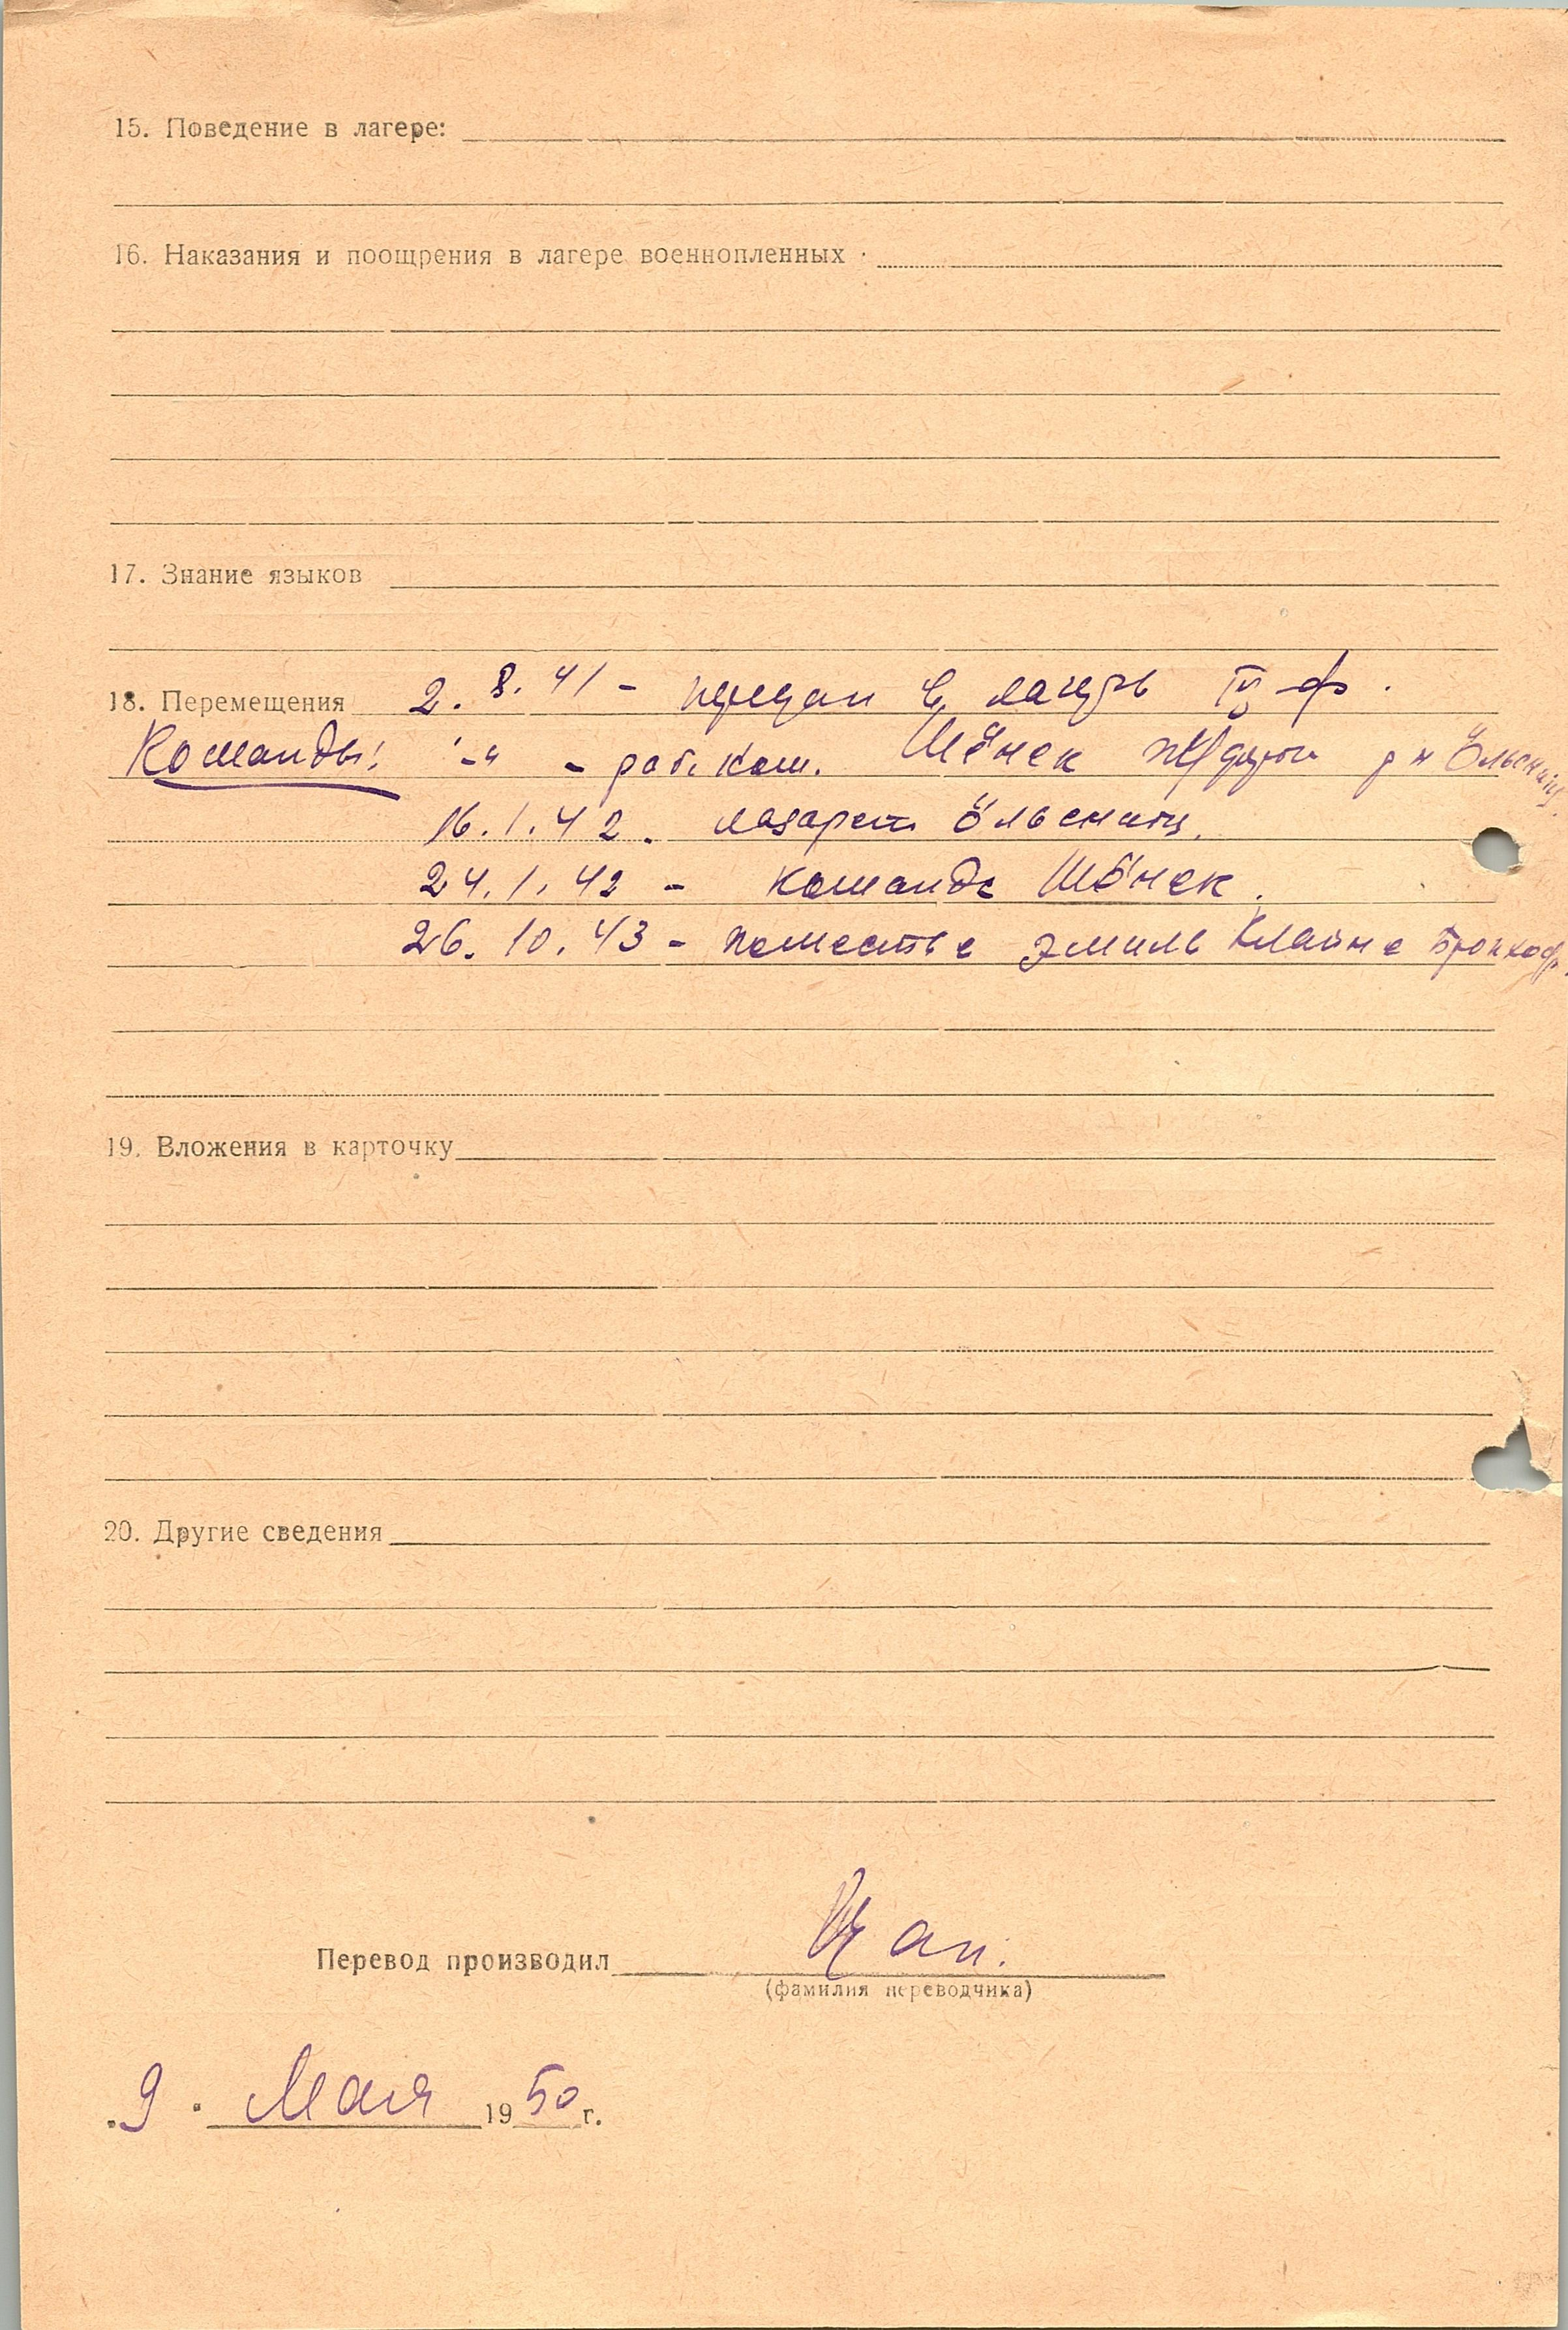 15. Поведение в лагере:
16. Наказания и поощрения в лагере военнопленных
17. Знание языков
18. Перемещения 2. 8. 41 - передан в лагерь IV ф.
Команды: -"- - раб. ком. Шёнек р-н Ӧльсниц
16. 1. 42. лазарет Ӧльсниц.
24. 1. 42 - команда Шӧнек.
26. 10. 43 - поместье Эмиль Клайне
19. Вложения в карточку
20. Другие сведения
Перевод производил
(фамилия переводчика)
"9" Мая 1950 г.